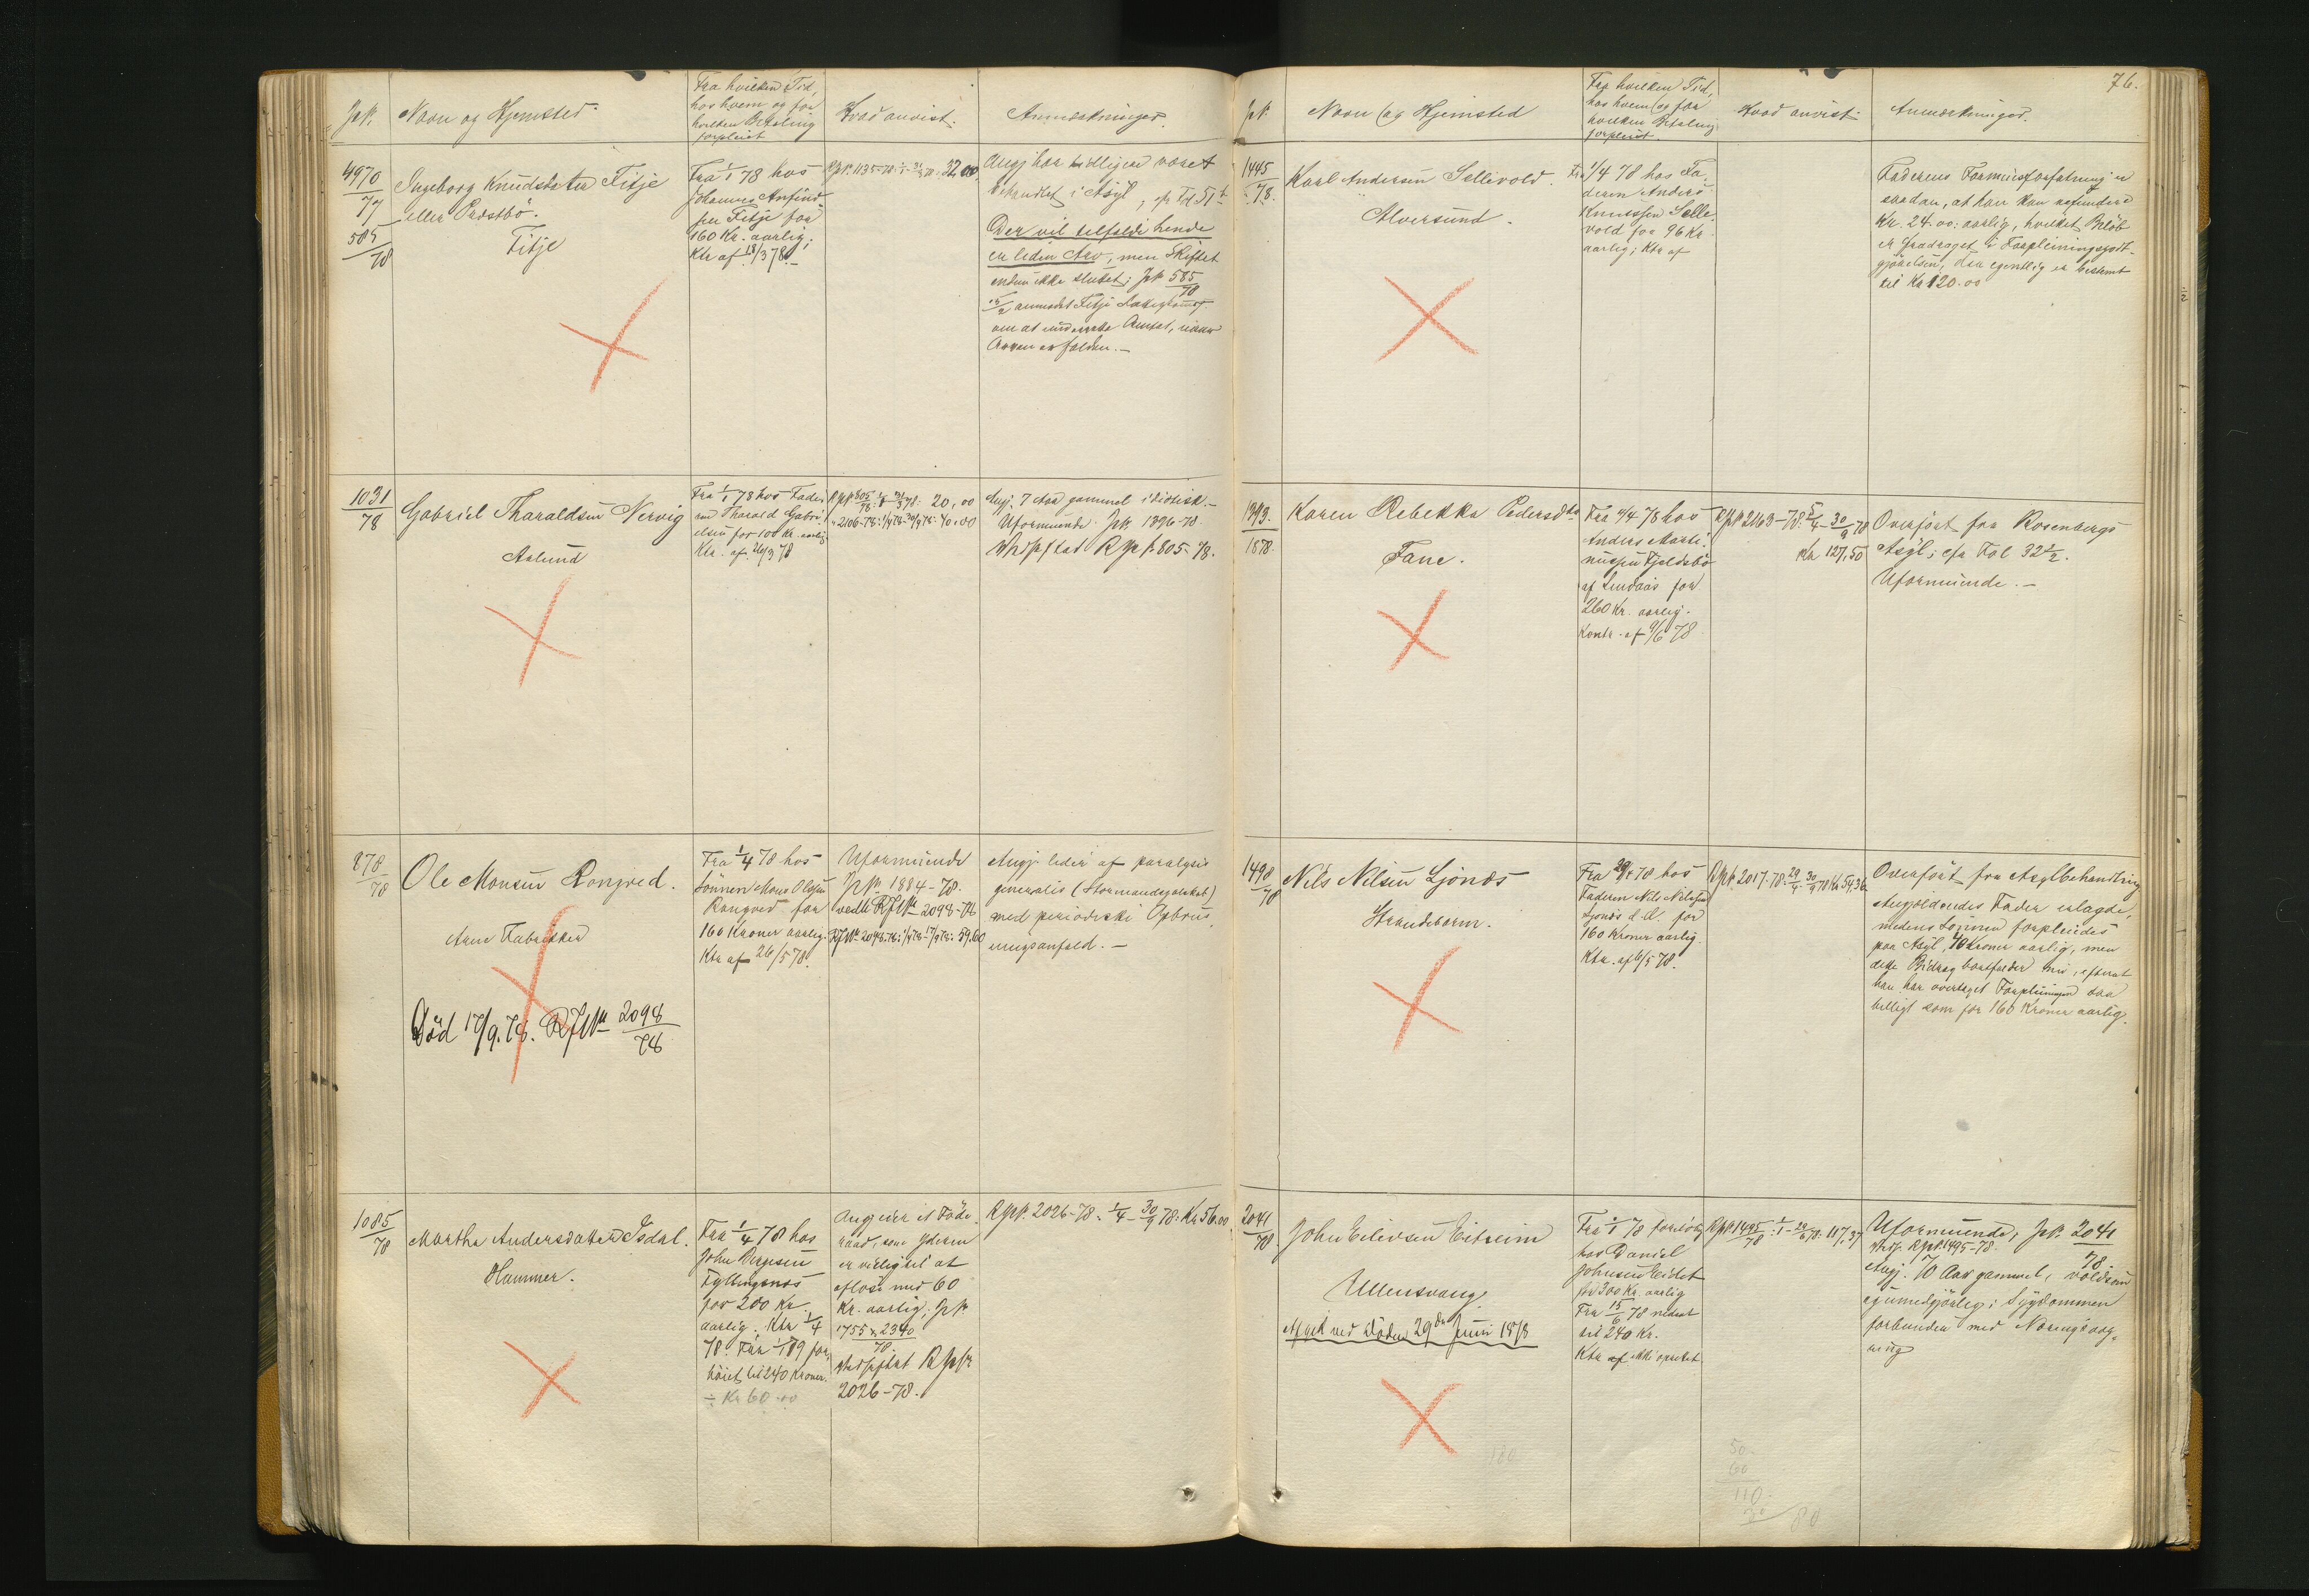 JNr.
Navn og Hjemsted
Fra hvilken Tid,
hos hvem og for
hvilken Betaling
forpleiet
Hvad anvist.
Anmærkninger.
4970
77
585
78
Ingeborg Knudsdatter Fitje
eller Præstbö.
Fitje
Fra 1/1 78 hos
Johannes Anfind-
sen Fitje for
160 Kr. aarlig;
Ktr af 18/3 78.
RJNr. 1135-78: 1/1-31/3 78. 32,00
Angj har tidligere været
behandlet i Asyl, cfr Fol 51
Der vil tilfalde hende
en liden Arv, men Skiftet
endnu ikke sluttet; JNr 585
78
anmodet Fitje
om at underrette Amtet, naar
Arven er falden.
1031
78
Gabriel Tharaldsen Nervig
Aalund
Fra 1/1 78 hos Fade-
ren Tharald Gabri-
elsen for 100 Kr. aarlig
Ktr. af 26/3 78
RJNr. 805/78: 1/1-31/3 78: 20,00
" 2106-78: 1/4 78-30/9 78: 40,00
Angj. 7 Aar gammel idiotisk.
Uformuende JNr. 1396-78.
RJNr. 805-78.
878
78
Ole Monsen Rongved.
Arne Fabrikker
Död 17/9.78. RJNr 2098
78
Fra 1/4 78 hos
Sönnen Mons Olsen
Rongved for
160 Kroner aarlig.
Ktr af 26/5 78.
Uformuende
JNr. 1884-78.
vedl. RJNr 2098-78
RJNr 2098-78: 1/4 78-17/9 78: 59.60
Angj. lider af paralysis
generalis (Stormandsgalskab)
med periodiske Opbrus-
ningsanfald.
1085
78
Martha Andersdatter Isdal.
Hammer.
Fra 1/4 78 hos
John Börgesen
Fyllingsnæs
for 200 Kr.
aarlig. Ktr 1/4
78. Fra 1/1 89 for-
höiet til 240 Kroner.
÷ Kr 60.00
Angj eier et Föde-
raad, som Yderen
er villig til at
aflöse med 60
Kr. aarlig; JNr.
1755 & 2340
78.
RJNr
2026-78.
RJNr. 2026-78: 1/4-30/9 78: Kr 56.00
76.
JNr.
Navn og Hjemsted
Fra hvilken Tid,
hos hvem og for
hvilken Betaling
forpleiet.
Hvad anvist.
Anmærkninger.
1445
78.
Karl Andersen Sellevold.
Alversund.
Fra 1/4 78 hos Fa-
deren Anders
Knutssen Selle-
vold for 96 Kr.
aarlig; Ktr af
Faderens Formuesforfatning er
saadan, at han kan refundere
Kr. 24.00: aarlig, hvilket Belöb
er fradraget i Forpleiningsgodt-
gjörelsen, der egentlig er bestemt
til Kr 120.00
1393.
1878.
Karen Rebekka Pedersdtr
Fane.
Fra 5/4 78 hos
Anders Marti-
nussen Fjeldsbö
af Lindaas for
260 Kr. aarlig.
Kontr. af 9/6 78
RJNr 2163-78: 5/4-30/9 78
Kr 127,50
Overfört fra Rosenbergs
Asyl; cfr Fol 32 1/2.
Uformuende.
1498
78
Nils Nilsen Ljönæs
Strandebarm.
Fra 29/4 78 hos
Faderen Nils Nilssen
Ljönæs d. Æ. for
160 Kroner aarlig.
Ktr. af 6/5 78.
RJNr. 2017-78: 29/4-30/9 78 Kr 54,36
Overfört fra Asylbehandling
Angjældendes Fader erlagde,
medens Sönnen forpleiedes
paa Asyl, 48 Kroner aarlig, men
dette Bidrag bortfalder nu, efterat
han har overtaget Forpleiningen saa
billigt som for 160 Kroner aarlig.
2041
78
John Eilevsen Eitreim
Ullensvang
Afgik ved Döden 29de Juni 1878
Fra 1/1 78 forelöbig
hos Daniel
Johnsen Eidet
for 300 Kr. aarlig
Fra 15/6 78 nedsat
til 240 Kr.
Ktr af ikke oprettet
RJNr. 1495/78: 1/1-29/6 78: 117,37
Uformuende; JNr. 2041
78.
RJNr. 1495-78.
Angj. 70 Aar gammel, voldsom
og umedgjörlig; Sygdommen
forbunden med Næringsvæg-
ring
180
50
60
110
80